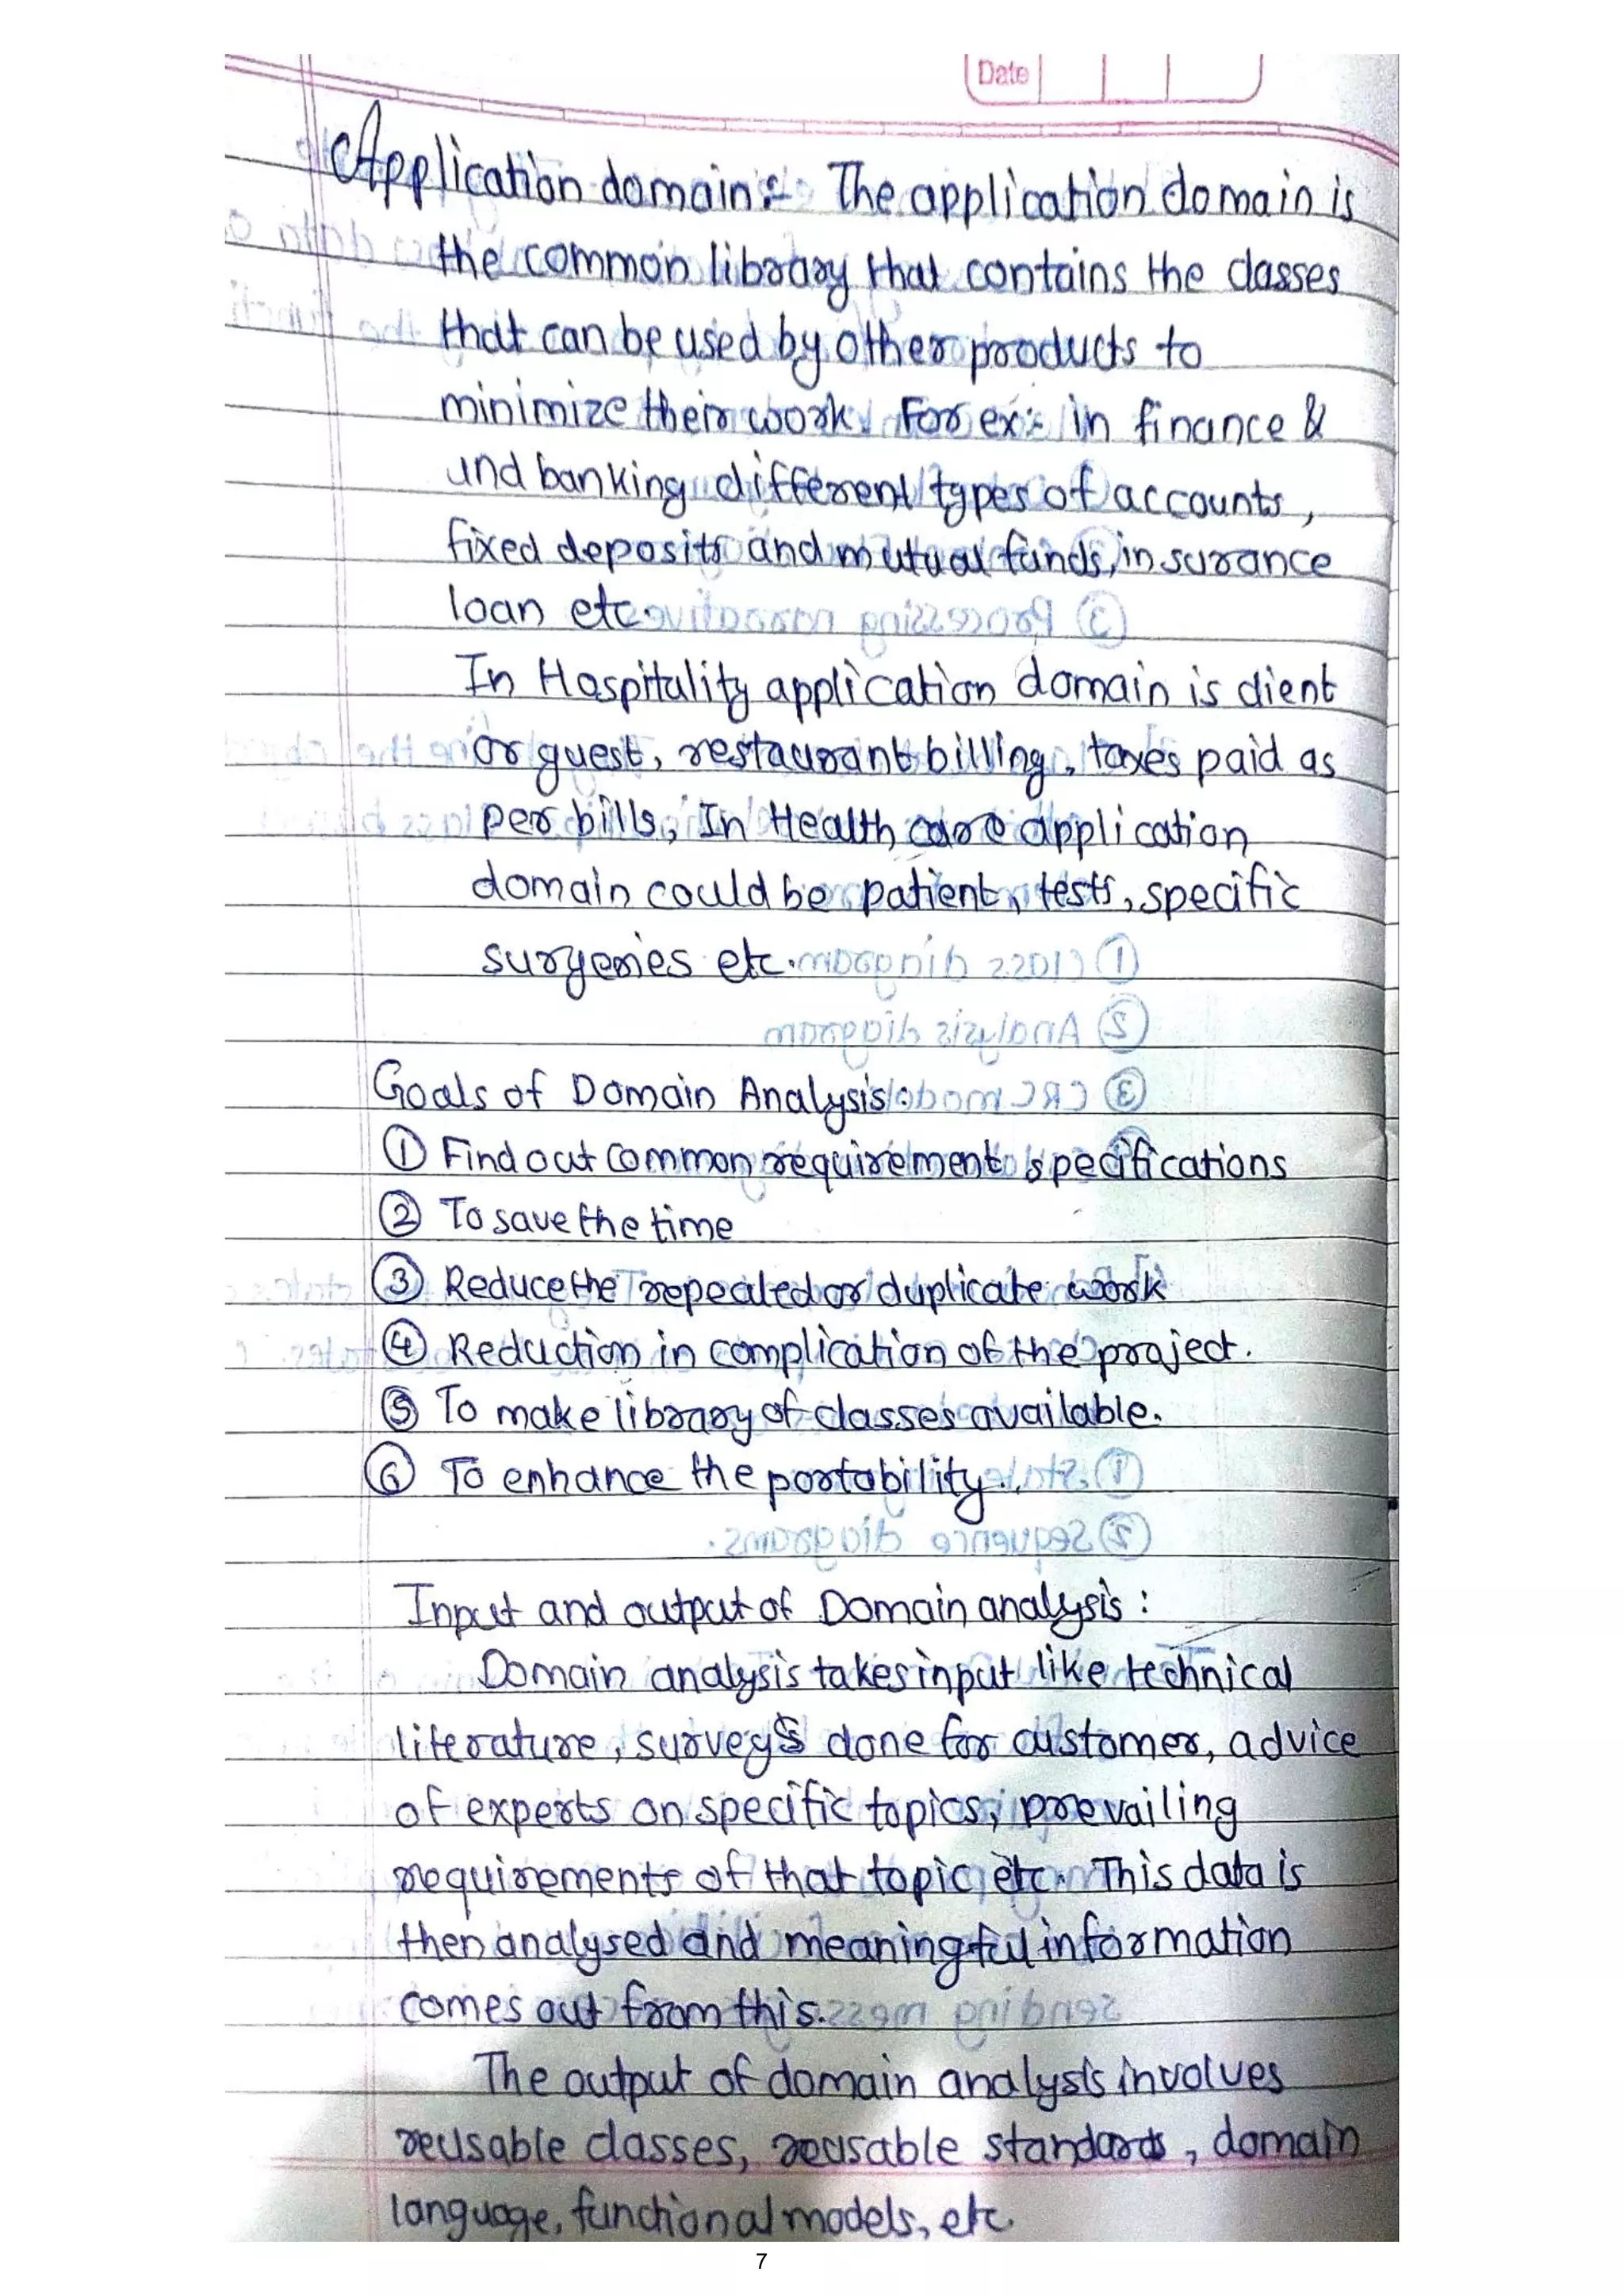 Date
Application domain :- The application domain is
the common library that contains the classes
that can be used by other products to
minimize their work. For ex:- in finance &
and banking different types of accounts,
fixed deposits and mutual funds, insurance
loan etc.
In Hospitality application domain is client
or guest, restaurant billing, taxes paid as
per bills, In Health care application
domain could be patient, tests, specific
surgeries etc.
Goals of Domain Analysis:
① Find out common requirement specifications
② To save the time
③ Reduce the repeated or duplicate work
④ Reduction in complication of the project.
⑤ To make library of classes available.
⑥ To enhance the portability.
Input and output of Domain analysis :
Domain analysis takes input like technical
literature, surveys done for customer, advice
of experts on specific topics, prevailing
requirements of that topic etc. This data is
then analysed and meaningful information
comes out from this.
The output of domain analysis involves
reusable classes, reusable standards, domain
language, functional models, etc.
7